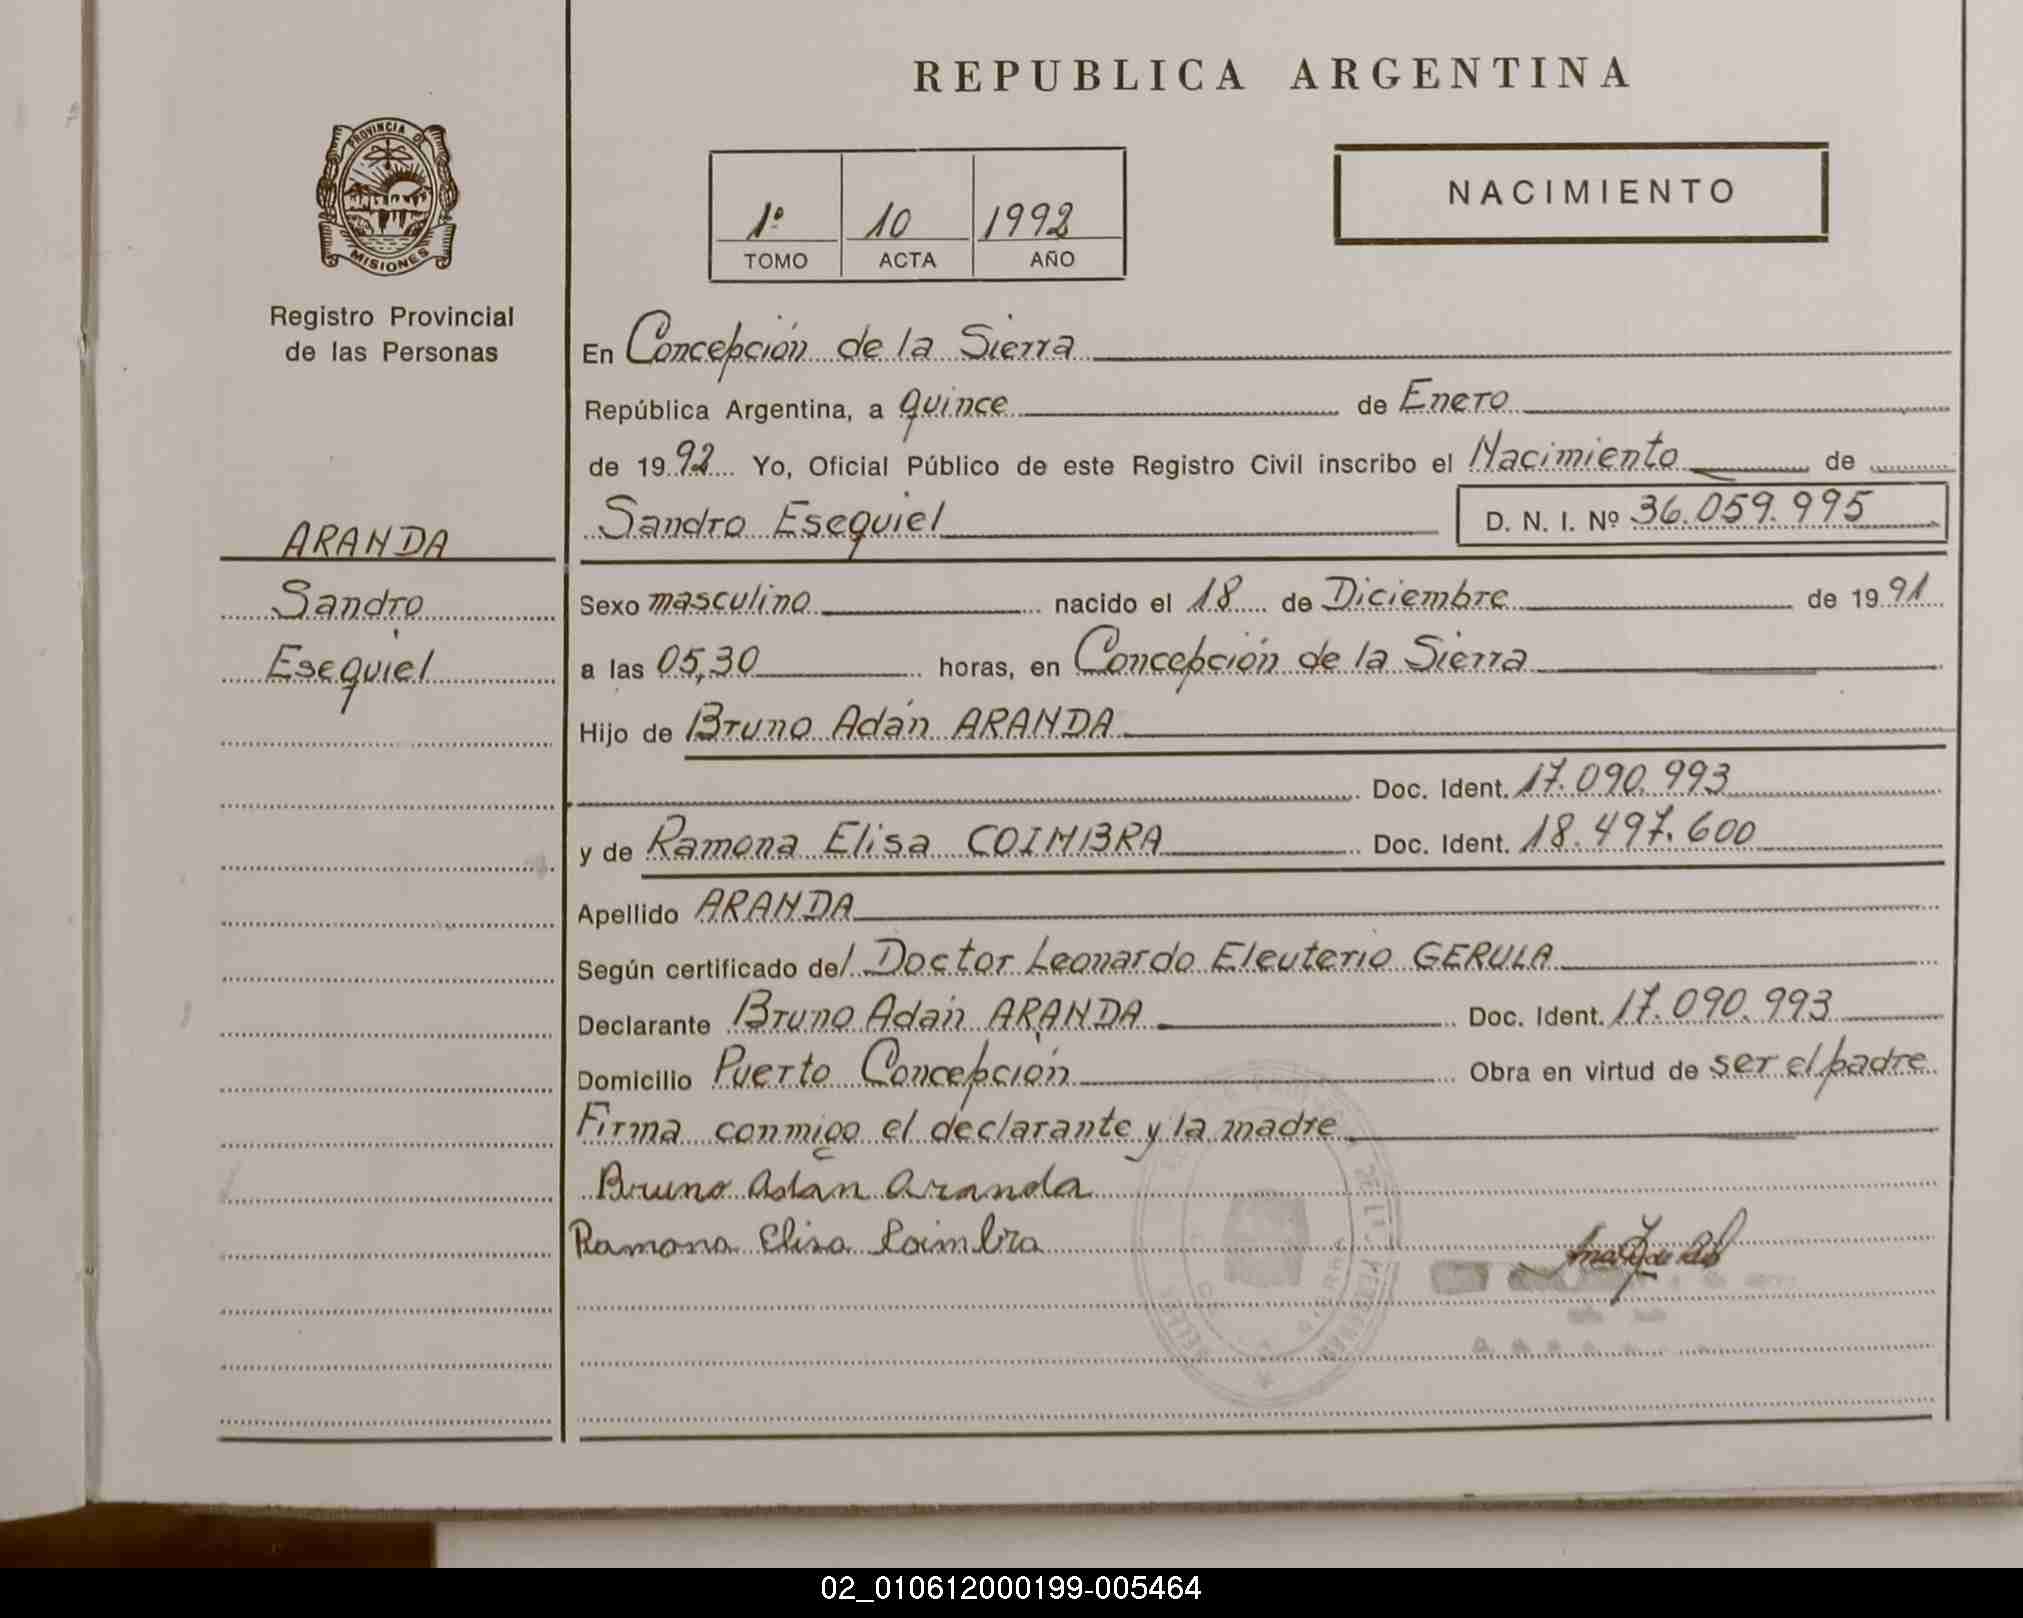 REPUBLICA ARGENTINA
PROVINCIA DE
MISIONES
Registro Provincial
de las Personas
NACIMIENTO
1º 10 1992
TOMO ACTA AÑO
En Concepción de la Sierra
República Argentina, a quince de Enero
de 1992 Yo, Oficial Público de este Registro Civil inscribo el Nacimiento de
Sandro Esequiel D. N. I. Nº 36.059.995
ARANDA
Sandro
Esequiel
Sexo masculino nacido el 18 de Diciembre de 1991
a las 05,30 horas, en Concepción de la Sierra
Hijo de Bruno Adán ARANDA
Doc. Ident. 17.090.993
y de Ramona Elisa COIMBRA Doc. Ident. 18.497.600
Apellido ARANDA
Según certificado del Doctor Leonardo Eleuterio GERULA
Declarante Bruno Adán ARANDA Doc. Ident. 17.090.993
Domicilio Puerto Concepción Obra en virtud de ser el padre
Firma conmigo el declarante y la madre
Bruno Adán Aranda
Ramona Elisa Coimbra
02_010612000199-005464